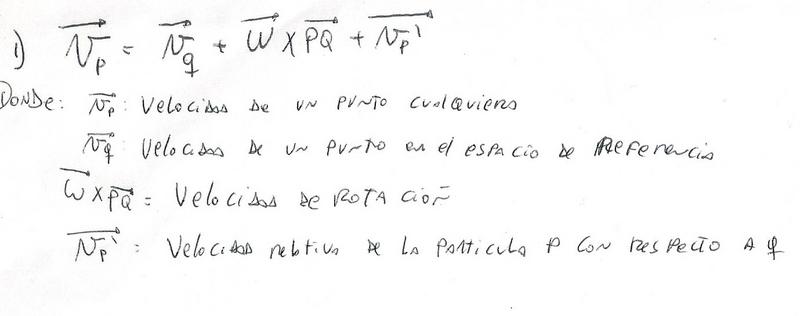 1) Vp = Vq + W X PQ + Vp'
DONDE: Vp: Velocidad de un punto cualquiera
Vq: Velocidad de un punto en el espacio de Referencia
W X PQ = Velocidad de ROTACION
Vp': Velocidad relativa de la particula P con respecto A q